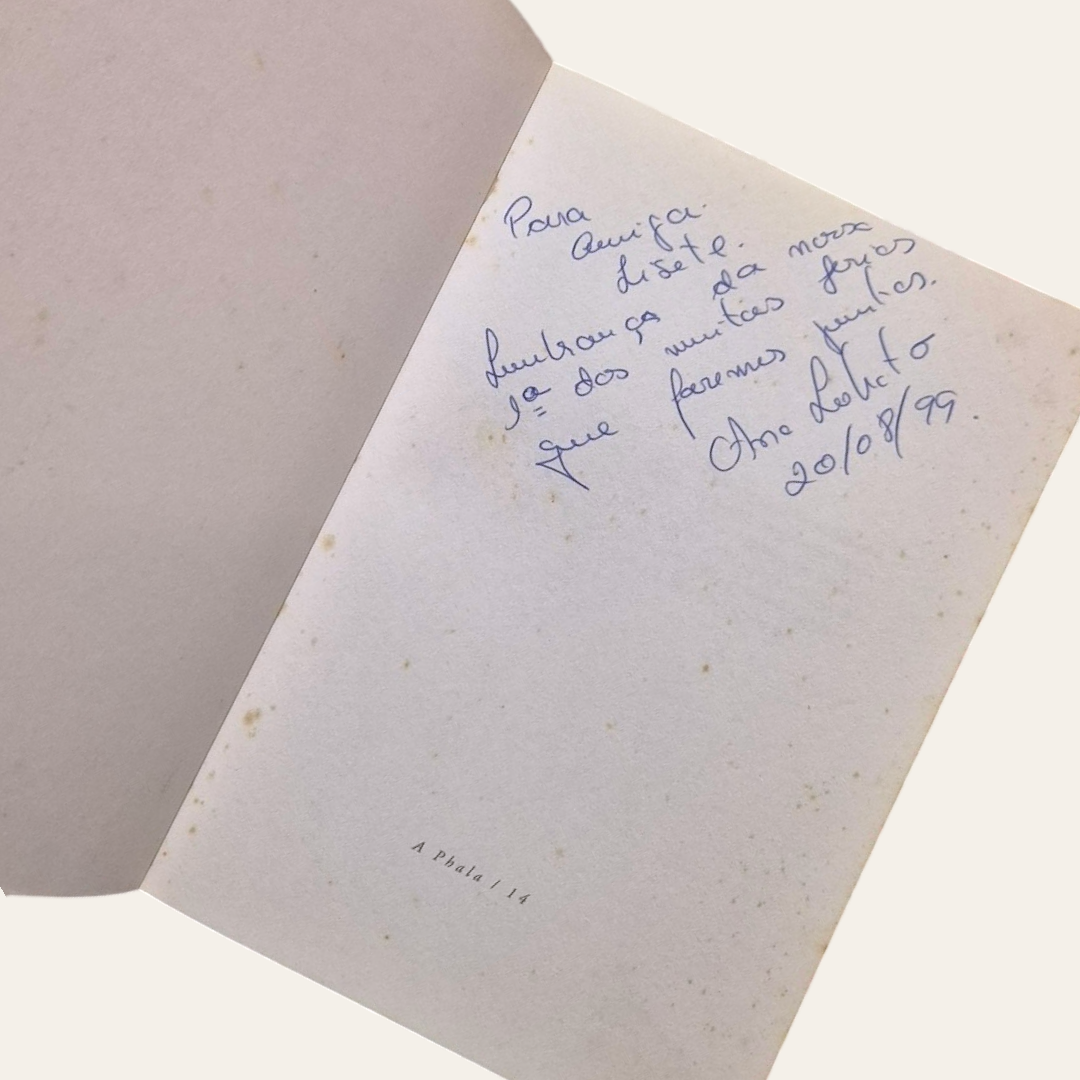 Para
amiga.
Lisete.
Lembrança da nossa
1ª das muitas férias
que faremos juntas.
Ana Lobato
20/08/99.
A Phala / 14